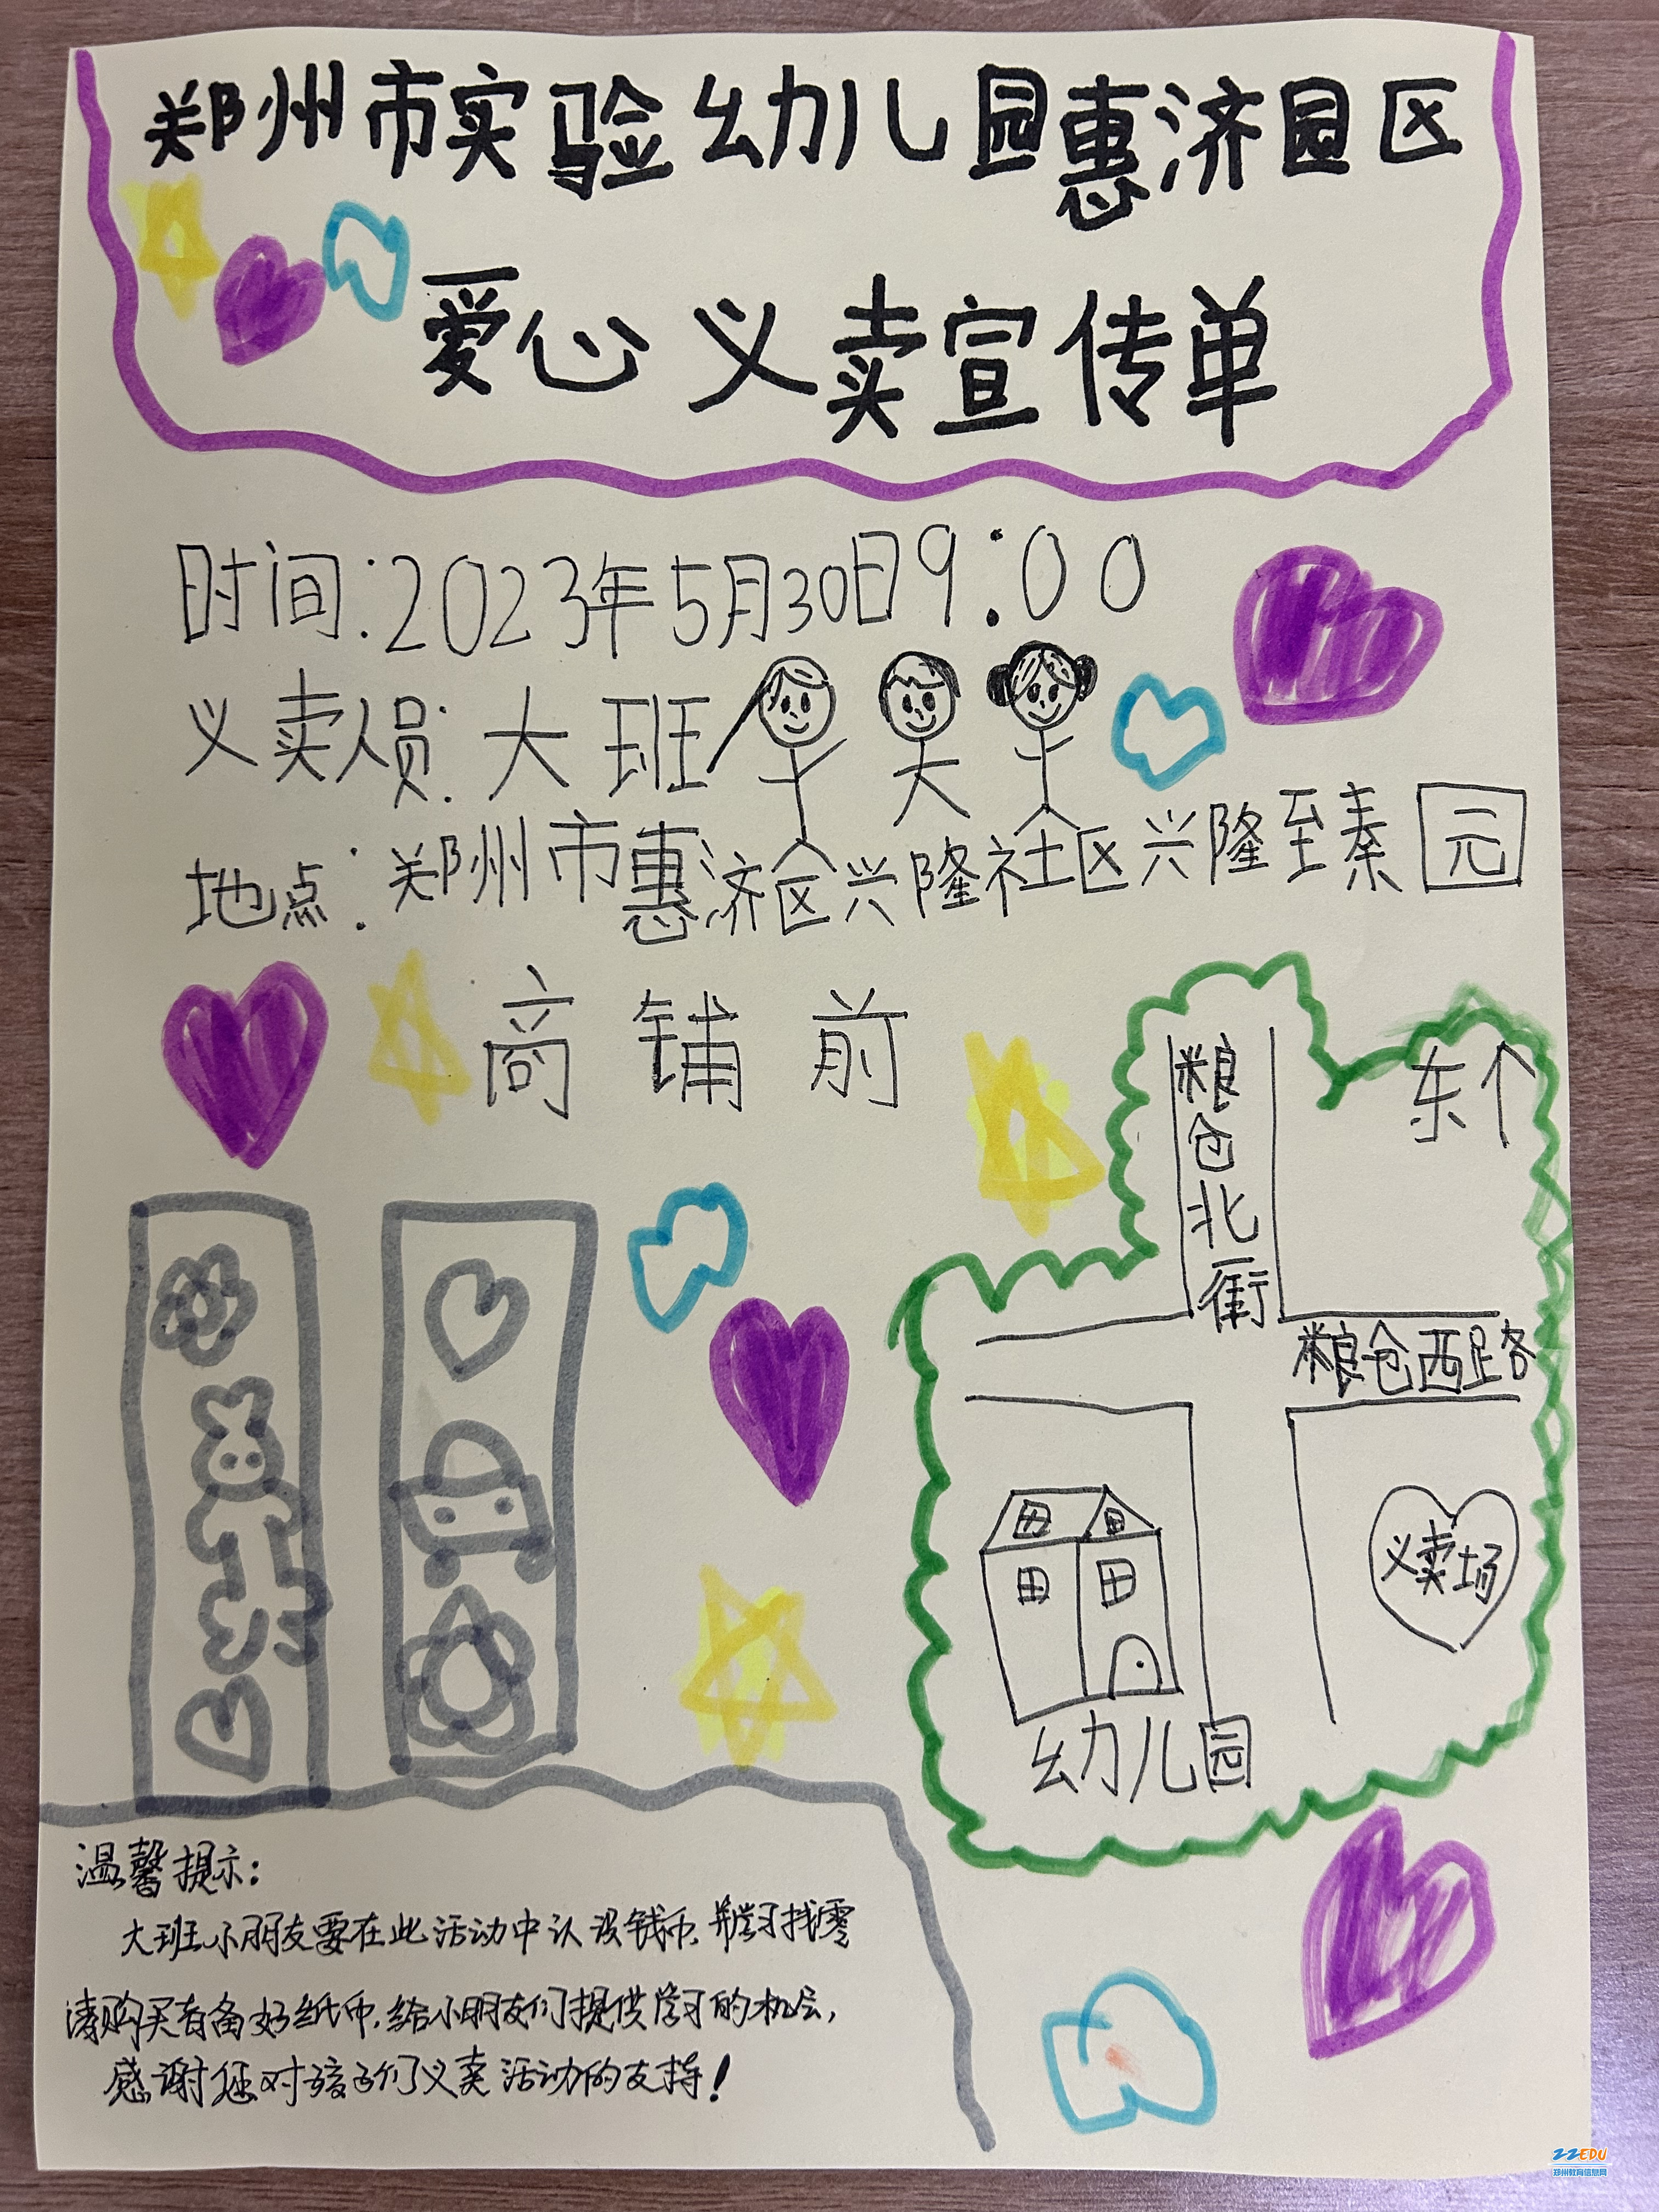 郑州市实验幼儿园惠济园区
爱心义卖宣传单
时间:2023年5月30日9:00
义卖人员:大班
地点:郑州市惠济区兴隆社区兴隆至臻园
商铺前
东个
粮仓北街
粮仓西路
义卖场
幼儿园
温馨提示:
大班小朋友要在此活动中认识钱币,并学习找零
请购买者备好纸币,给小朋友们提供学习的机会,
感谢您对孩子们义卖活动的支持!
ZZEDU
郑州教育信息网